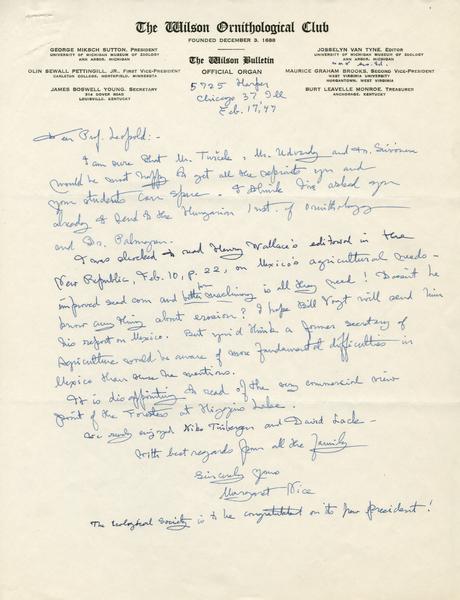 The Wilson Ornithological Club
FOUNDED DECEMBER 3, 1888
GEORGE MIKSCH SUTTON, PRESIDENT
UNIVERSITY OF MICHIGAN MUSEUM OF ZOOLOGY
ANN ARBOR, MICHIGAN
OLIN SEWALL PETTINGILL, JR., FIRST VICE-PRESIDENT
CARLETON COLLEGE, NORTHFIELD, MINNESOTA
JAMES BOSWELL YOUNG, SECRETARY
514 DOVER ROAD
LOUISVILLE, KENTUCKY
The Wilson Bulletin
OFFICIAL ORGAN
JOSSELYN VAN TYNE, EDITOR
UNIVERSITY OF MICHIGAN MUSEUM OF ZOOLOGY
ANN ARBOR, MICHIGAN
MAURICE GRAHAM BROOKS, SECOND VICE-PRESIDENT
WEST VIRGINIA UNIVERSITY
MORGANTOWN, WEST VIRGINIA
BURT LEAVELLE MONROE, TREASURER
ANCHORAGE, KENTUCKY
5725 Harper
Chicago 37 Ill
Feb. 17, '47
Dear Prof. Leopold:-
I am sure that Mr. , Mr. Udvardy and Dr. Siivonen
would be most happy to get all the reprints you and
your students can spare. I think I've asked you
already to send to the Hungarian Inst. of Ornithology
and Dr. Palmgren.
I was shocked to read Henry Wallace's editorial in the
New Republic, Feb. 10, p. 22, on Mexico's agricultural needs -
improved seed corn and better machinery is all they need! Doesn't he
know anything about erosion? I hope Bill Vogt will send him
his report on Mexico. But you'd think a former secretary of
Agriculture would be aware of more fundamental difficulties in
Mexico than those he mentions.
It is disappointing to read of the very commercial view
point of the Foresters at Higgins Lake.
We surely enjoyed Niko Tinbergen and David Lack -
With best regards from all the family
Sincerely yours
Margaret Nice
The Ecological Society is to be congratulated on its new president!